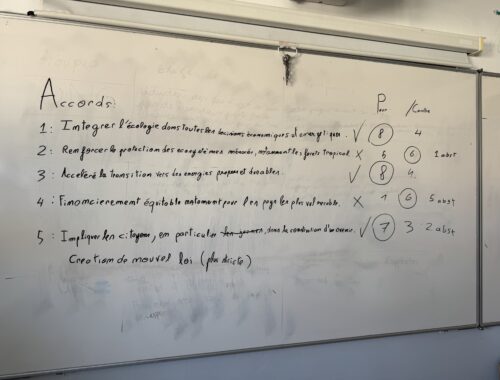 Accords: Pour /Contre
1: Integrer l'écologie dans toutes les decisions économiques et energetiques. ✓ 8 4
2: Renforcer la protection des ecosystèmes menacés, notamment les forets tropical X 5 6 1 abst
3: Accéléré la transition vers des energies propres et durables. ✓ 8 4
4: Financierement équitable notamment pour les pays les plus vulnerable. X 1 6 5 abst
5: Impliquer les citoyens, en particulier dans la construction d'un avenir. ✓ 7 3 2 abst
Creation de nouvel loi (plus stricte)